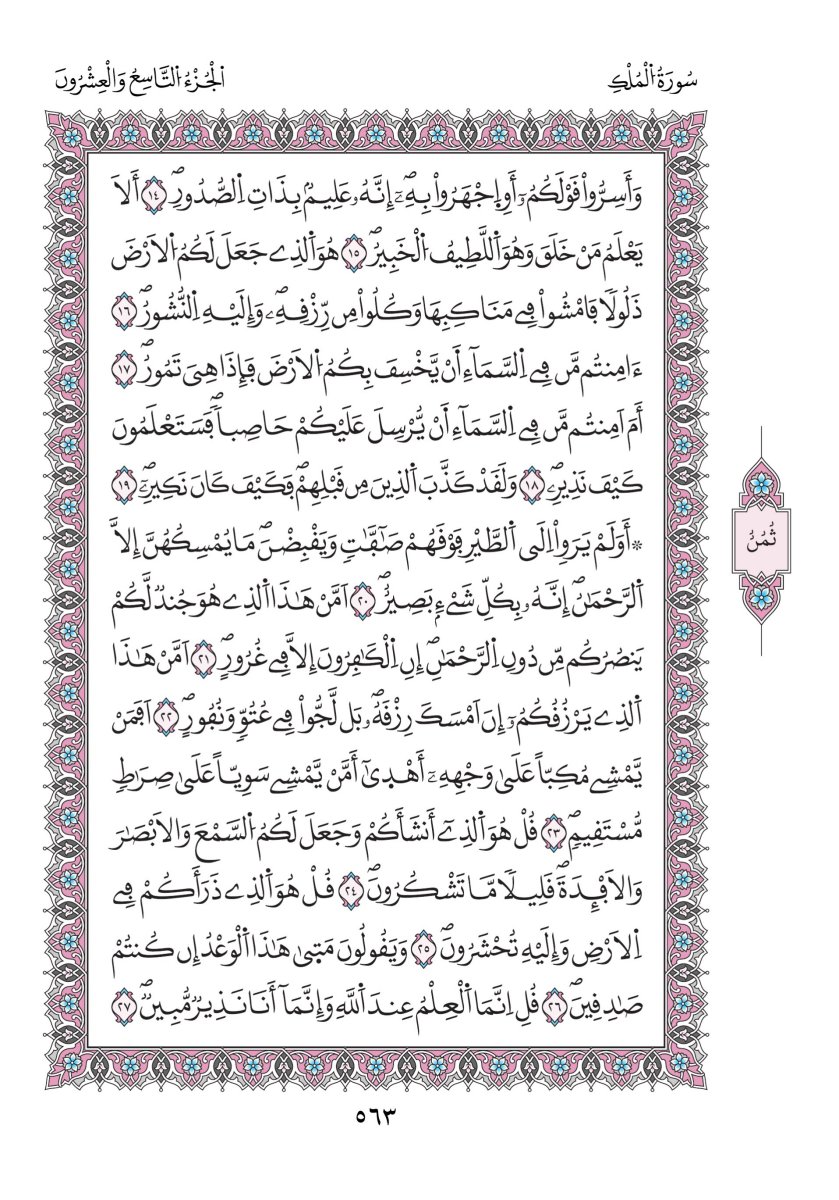 سُورَةُ اُ۬لْمُلْكِ
اَ۬لْجُزْءُ اُ۬لتَّاسِعُ وَالْعِشْرُونَ
وَأَسِرُّواْ قَوْلَكُمُۥٓ أَوِ اِ۪جْهَرُواْ بِهِۦٓۖ إِنَّهُۥ عَلِيمُۢ بِذَاتِ اِ۬لصُّدُورِۖ ١٤ أَلَا
يَعْلَمُ مَنْ خَلَقَ وَهُوَ اَ۬للَّطِيفُ اُ۬لْخَبِيرُۖ ١٥ هُوَ اَ۬لذِے جَعَلَ لَكُمُ اُ۬لَارْضَ
ذَلُولاٗ فَامْشُواْ فِے مَنَاكِبِهَا وَكُلُواْ مِن رِّزْقِهِۦۖ وَإِلَيْهِ اِ۬لنُّشُورُۖ ١٦
ءَٰامِنتُم مَّن فِے اِ۬لسَّمَآءِ اَ۬نْ يَّخْسِفَ بِكُمُ اُ۬لَارْضَ فَإِذَا هِيَ تَمُورُۖ ١٧
أَمَ اَمِنتُم مَّن فِے اِ۬لسَّمَآءِ اَ۬نْ يُّرْسِلَ عَلَيْكُمْ حَاصِباٗۖ فَسَتَعْلَمُونَ
كَيْفَ نَذِيرِۖۦ ١٨ وَلَقَدْ كَذَّبَ اَ۬لذِينَ مِن قَبْلِهِمْۖ فَكَيْفَ كَانَ نَكِيرِۦٓۖ ١٩
۞أَوَلَمْ يَرَوِاْ اِلَى اَ۬لطَّيْرِ فَوْقَهُمْ صَٰٓفَّٰتٖ وَيَقْبِضْنَۖ مَا يُمْسِكُهُنَّ إِلَّا
اَ۬لرَّحْمَٰنُۖ إِنَّهُۥ بِكُلِّ شَےْءِۢ بَصِيرٌۖ ٢٠ اَمَّنْ هَٰذَا اَ۬لذِے هُوَ جُندٞ لَّكُمْ
يَنصُرُكُم مِّن دُونِ اِ۬لرَّحْمَٰنِۖ إِنِ اِ۬لْكَٰفِرُونَ إِلَّا فِے غُرُورٍۖ ٢١ اَمَّنْ هَٰذَا
اَ۬لذِے يَرْزُقُكُمُۥٓ إِنَ اَمْسَكَ رِزْقَهُۥۖ بَل لَّجُّواْ فِے عُتُوّٖ وَنُفُورٍۖ ٢٢ اَفَمَنْ
يَّمْشِے مُكِبّاً عَلَىٰ وَجْهِهِۦٓ أَهْد۪ىٰٓ أَمَّنْ يَّمْشِے سَوِيّاً عَلَىٰ صِرَٰطٖ
مُّسْتَقِيمٖۖ ٢٣ قُلْ هُوَ اَ۬لذِےٓ أَنشَأَكُمْ وَجَعَلَ لَكُمُ اُ۬لسَّمْعَ وَالَابْصَٰرَ
وَالَافْـِٕدَةَۖ قَلِيلاٗ مَّا تَشْكُرُونَۖ ٢٤ قُلْ هُوَ اَ۬لذِے ذَرَأَكُمْ فِے
اِ۬لَارْضِ وَإِلَيْهِ تُحْشَرُونَۖ ٢٥ وَيَقُولُونَ مَت۪ىٰ هَٰذَا اَ۬لْوَعْدُ إِن كُنتُمْ
صَٰدِقِينَۖ ٢٦ قُلِ اِنَّمَا اَ۬لْعِلْمُ عِندَ اَ۬للَّهِ وَإِنَّمَآ أَنَا نَذِيرٞ مُّبِينٞۖ ٢٧
ثُمُنُ
٥٦٣